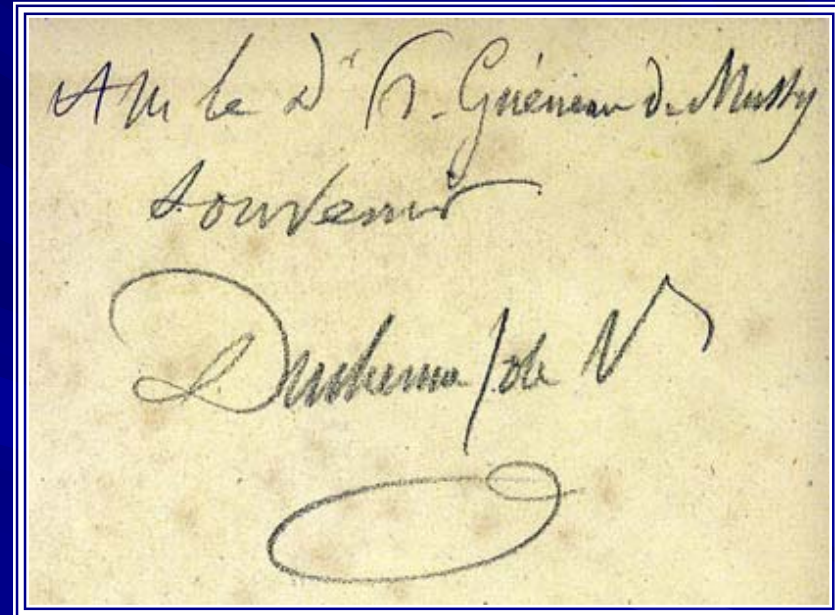 A M le Dr G. Guéneau de Mussy
souvenir
Duchenne (de